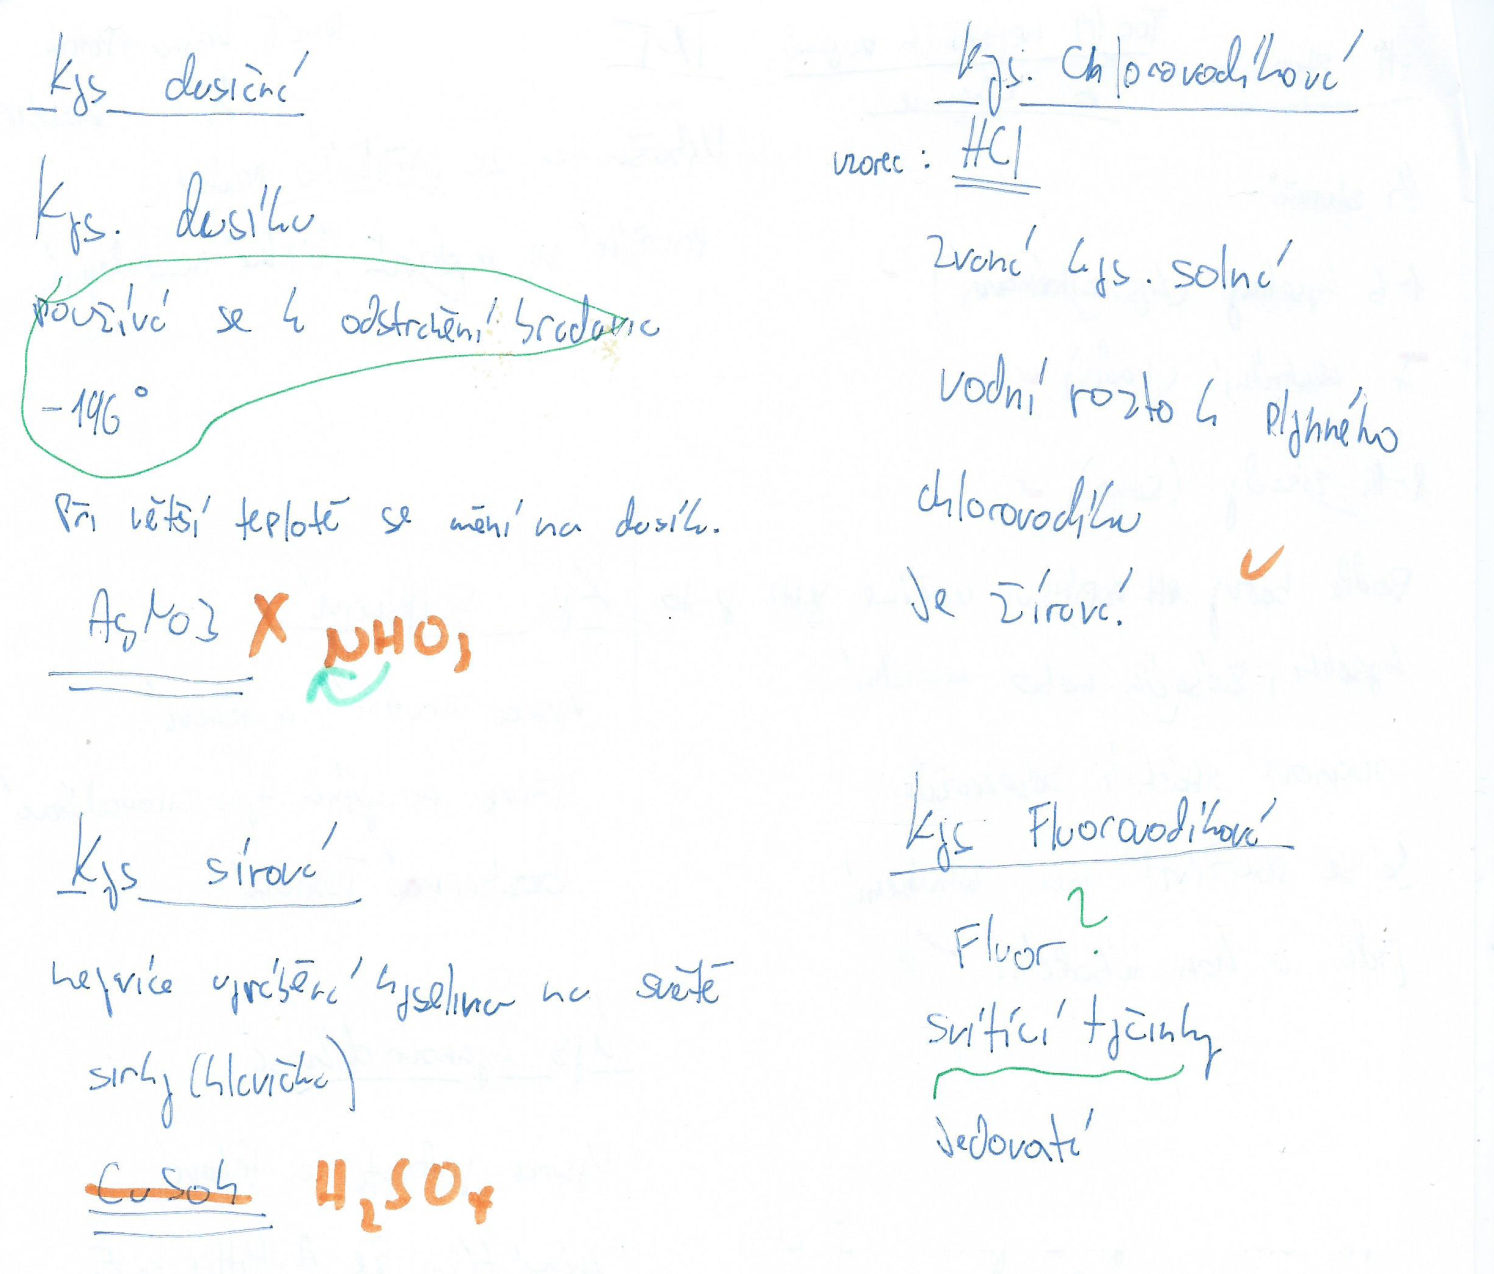 kys dusičná
kys. dusíku
používá se k odstrchění bradavic
-196°
při větší teplotě se mění na dusík.
AgNO3 X NHO3
kys sírová
nejvíce vyráběná kyselina na světě
sirky (hlavička)
CuSO4 H2SO4
kys. Chlorovodíková
vzorec: HCl
zvaná kys. solná
vodní roztok plynného
chlorovodíku
Je žíravá!
kys Fluorovodíková
Fluor ?
svítící tyčinky
Jedovatá